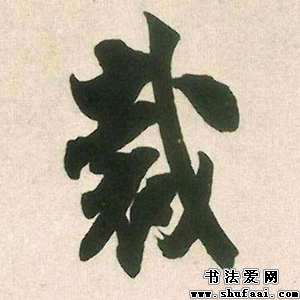 裁
书法爱网
www.shufaai.com